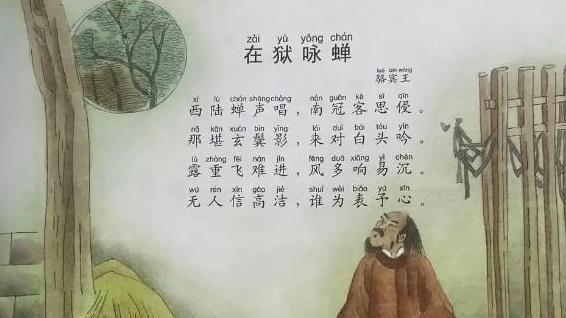 zài yù yǒng chán
在狱咏蝉
luò bīn wáng
骆宾王
xī lù chán shēng chàng nán guān kè sī qīn
西陆蝉声唱，南冠客思侵。
nǎ kān xuán bìn yǐng lái duì bái tóu yín
那堪玄鬓影，来对白头吟。
lù zhòng fēi nán jìn fēng duō xiǎng yì chén
露重飞难进，风多响易沉。
wú rén xìn gāo jié shuí wèi biǎo yú xīn
无人信高洁，谁为表予心。